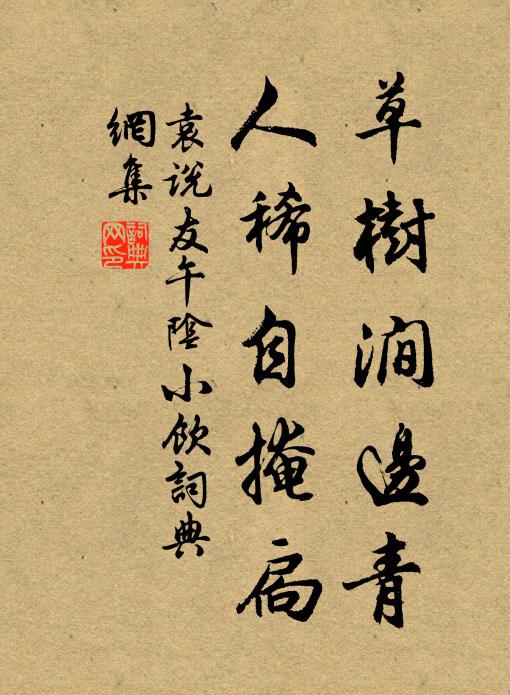 草樹澗邊青
人稀自掩扃
袁説友午陰小飲詞典
網集
詞典網印